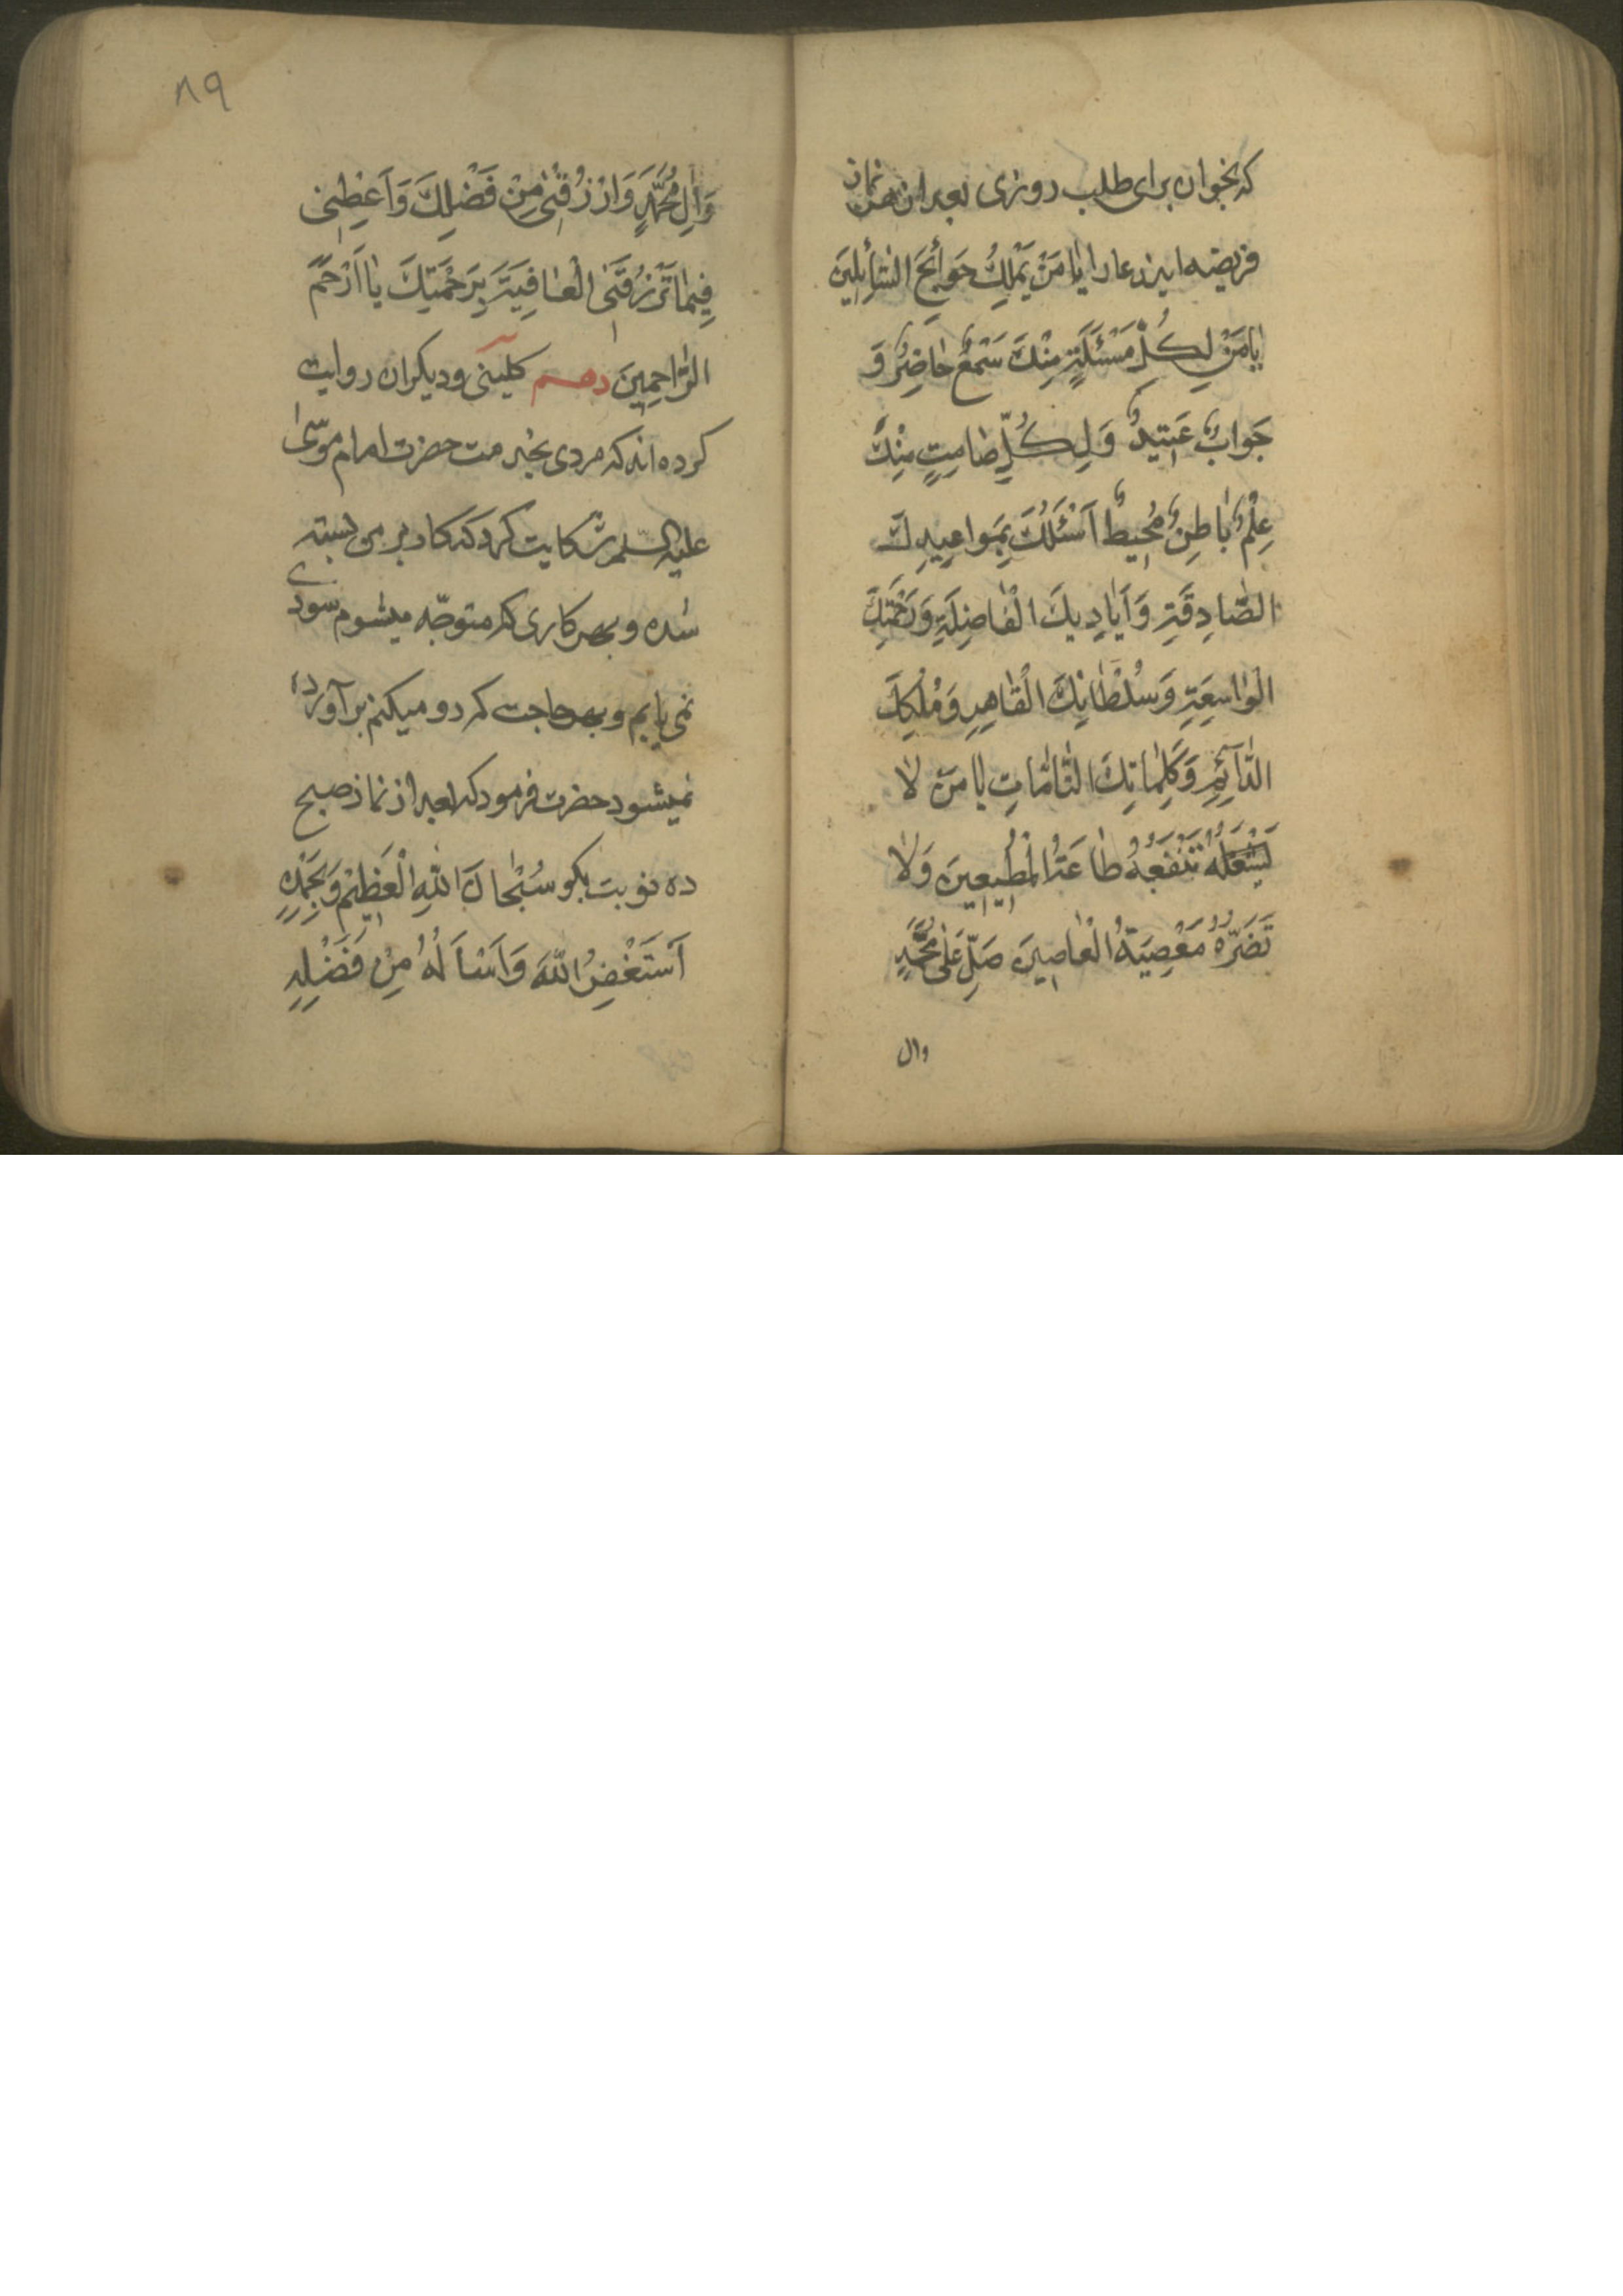 که بخوان برای طلب روزی بعد از هر نماز
فریضه این دعا را یٰا مَنْ یَمْلِکُ حَوٰائِجَ السّٰائِلینَ
یٰا مَنْ لِکُلِّ مَسْئَلَةٍ مِنْکَ سَمْعٌ حٰاضِرٌ وَ
جَوابٌ عَتیدٌ وَلِکُلِّ صٰامِتٍ مِنْکَ
عِلْمٌ بٰاطِنٌ مُحیطٌ اَسْئَلُکَ بِمَواعیدِکَ
الصّٰادِقَةِ وَ اَیٰادیکَ الْفٰاضِلَةِ وَ رَحْمَتِکَ
الْوٰاسِعَةِ وَ سُلْطٰانِکَ الْقٰاهِرِ وَ مُلْکِکَ
الدّٰآئِمِ وَ کَلِمٰاتِکَ التّٰامّٰاتِ یٰا مَنْ لٰا
تَنْفَعُهُ طٰاعَةُ الْمُطیعینَ وَلٰا
تَضُرُّهُ مَعْصِیَةُ الْعٰاصینَ صَلِّ عَلٰی مُحَمَّدٍ
وال
۸۹
وَ اٰلِ مُحَمَّدٍ وَ ارْزُقْنی مِنْ فَضْلِکَ وَ اَعْطِنی
فیمٰا تَرْزُقُنَی الْعٰافِیَةَ بِرَحْمَتِکَ یٰا اَرْحَمَ
الرّٰاحِمینَ دهم کلینی و دیکران روایت
کرده اند که مردی بخدمت حضرت امام موسٰی
علیه السلم شکایت کرد که کار بر من بسته
شده و بهر کاری که متوجّه میشوم سودی
نمی یابم و بهر حاجت که رو میکنم برآورده
نمیشود حضرت فرمود که بعد از نماز صبح
ده نوبت بکو سُبْحٰانَ اللّٰهِ الْعَظیمِ وَ بِحَمْدِهِ
اَسْتَغْفِرُ اللّٰهَ وَ اَسْاَلُهُ مِنْ فَضْلِهِ